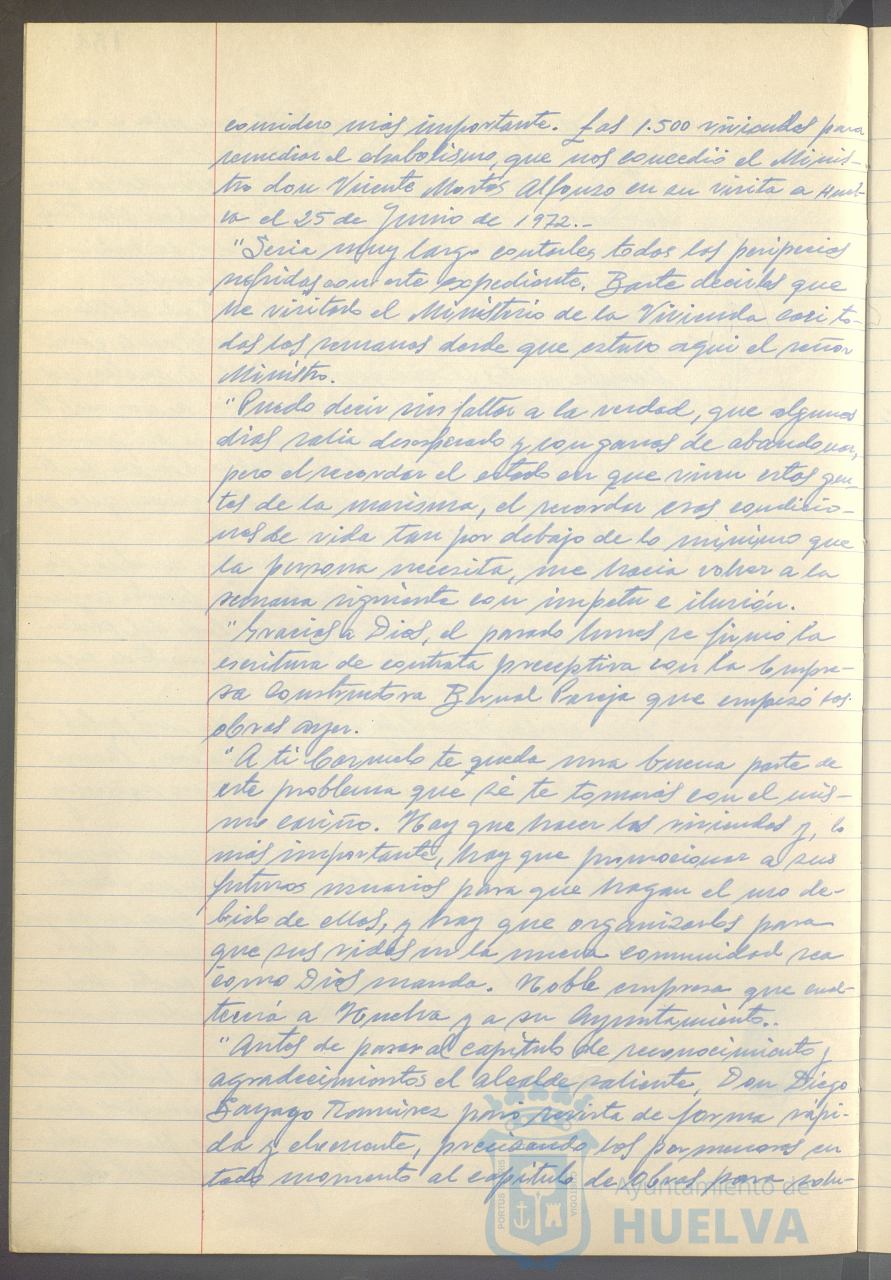 considero más importante. Las 1.500 viviendas para
remediar el chabolismo, que nos concedió el Minis-
tro don Vicente Mortes Alfonso en su visita a Huel-
va el 25 de Junio de 1972.-
"Seria muy largo contarles todas las peripecias
sufridas con este expediente. Baste decirles que
he visitado el Ministerio de la Vivienda casi to-
das las semanas desde que estuvo aqui el señor
Ministro.
"Puedo decir sin faltar a la verdad, que algunos
dias salia desesperado y con ganas de abandonar,
pero el recordar el estado en que viven estas gen-
tes de la marisma, el recordar esas condicio-
nes de vida tan por debajo de lo minimo que
la persona necesita, me hacia volver a la
semana siguiente con impetu e ilusión.
"Gracias a Dios, el pasado lunes se firmó la
escritura de contrata preceptiva con la Empre-
sa Constructora Bernal Pareja que empezó las
obras ayer.
"A ti Carmelo te queda una buena parte de
este problema que sé te tomarás con el mis-
mo cariño. Hay que hacer las viviendas y, lo
más importante, hay que promocionar a sus
futuros usuarios para que hagan el uso de-
bido de ellas, y hay que organizarlos para
que sus vidas en la nueva comunidad sea
como Dios manda. Noble empresa que enal-
tecerá a Huelva y a su Ayuntamiento..
"Antes de pasar al capitulo de reconocimiento y
agradecimientos el alcalde saliente, Don Diego
Sayago Ramirez pasó revista de forma rápi-
da y elocuente, precisando los pormenores en
todo momento al capitulo de Obras para
PORTUS MARIS
Ayuntamiento de
HUELVA